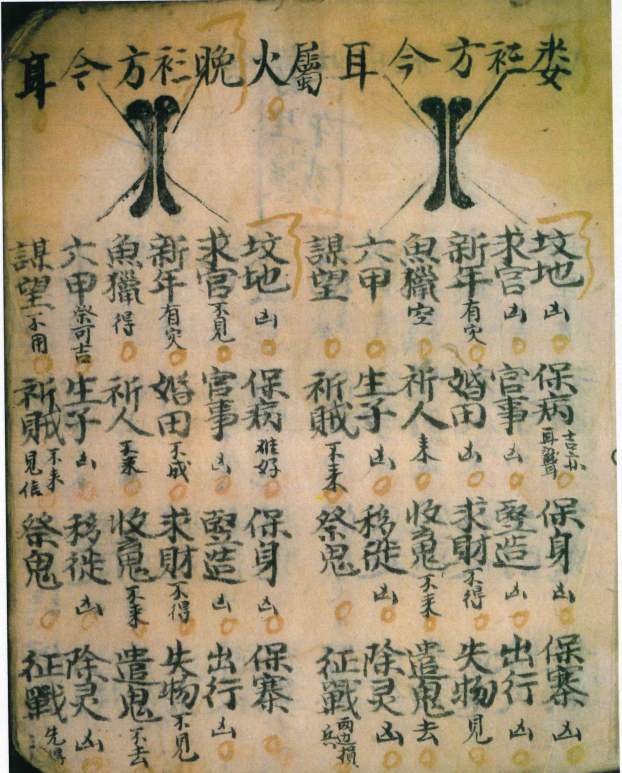 娄 方今耳屬火晚 方今耳
坟地凶 保病 耳聋 保身凶 保寨凶
求官凶 官事凶 竪造凶 出行凶
新年有灾 婚田凶 求財不得 失物見
魚獵空 祈人来 收鬼不来 遣鬼去
六甲 生子凶 移徙凶 除灵凶
謀望 祈賊不来 祭鬼 征戰 兩边損兵
坟地凶 保病难好 保身凶 保寨
求官不見 官事凶 竪造凶 出行凶
新年有灾 婚田不成 求財不得 失物不見
魚獵得 祈人不来 收鬼不来 遣鬼不去
六甲祭可吉 生子凶 移徙凶 除灵凶
謀望不用 祈賊不来見信 祭鬼 征戰先